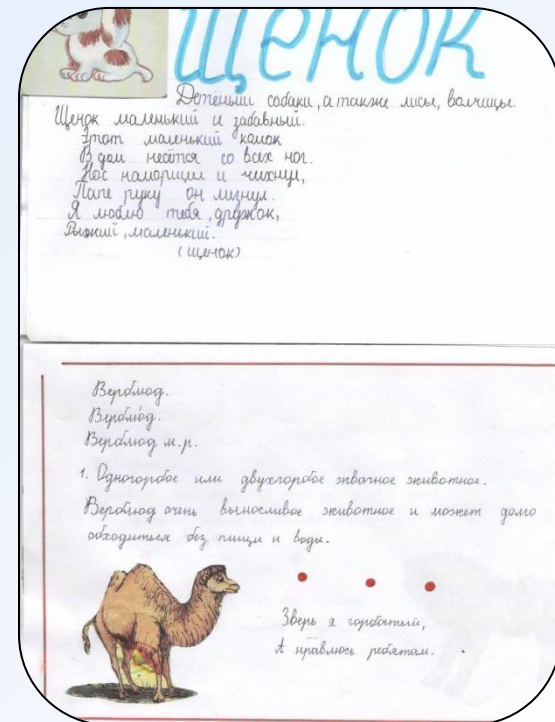 Щенок
Детёныш собаки, а также лисы, волчицы.
Щенок маленький и забавный.
Этот маленький комок
В дом несётся со всех ног.
Нос наморщил и чихнул,
Папе руку он лизнул.
Я люблю тебя, дружок,
Рыжий, маленький.
(щенок)
Верблюд.
Верблюд.
Верблюд м.р.
1. Одногорбое или двухгорбое жвачное животное.
Верблюд очень выносливое животное и может долго
обходиться без пищи и воды.
Зверь я горбатый,
А нравлюсь ребятам.